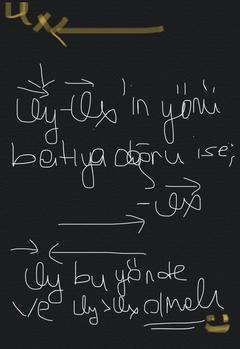 ux
ϑy-ϑx'in yönü
batıya doğru ise;
-ϑx
ϑy bu yönde
ve ϑy>ϑx olmalı